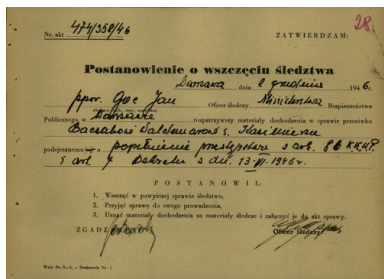 28
Nr. akt 474/350/46 ZATWIERDZAM:
Postanowienie o wszczęciu śledztwa
Warszawa dnia 2 grudnia 1946.
ppor. Goc Jan Oficer śledczy Ministerstwa Bezpieczeństwa
Publicznego w Warszawie rozpatrzywszy materiały dochodzenia w sprawie przeciwko
Waldemarowi s. Kazimierza
podejrzanemu o popełnienie przestępstwa z art. 86 KKWP
i art. 4 Dekretu z dn. 13.VI.1946r.
POSTANOWIŁ:
1. Wszcząć w powyższej sprawie śledztwo,
2. Przyjąć sprawę do swego prowadzenia,
3. Uznać materiały dochodzenia za materiały śledcze i załączyć je do akt sprawy.
ZGADZ
Oficer śledczy
Wzór Nr. 3